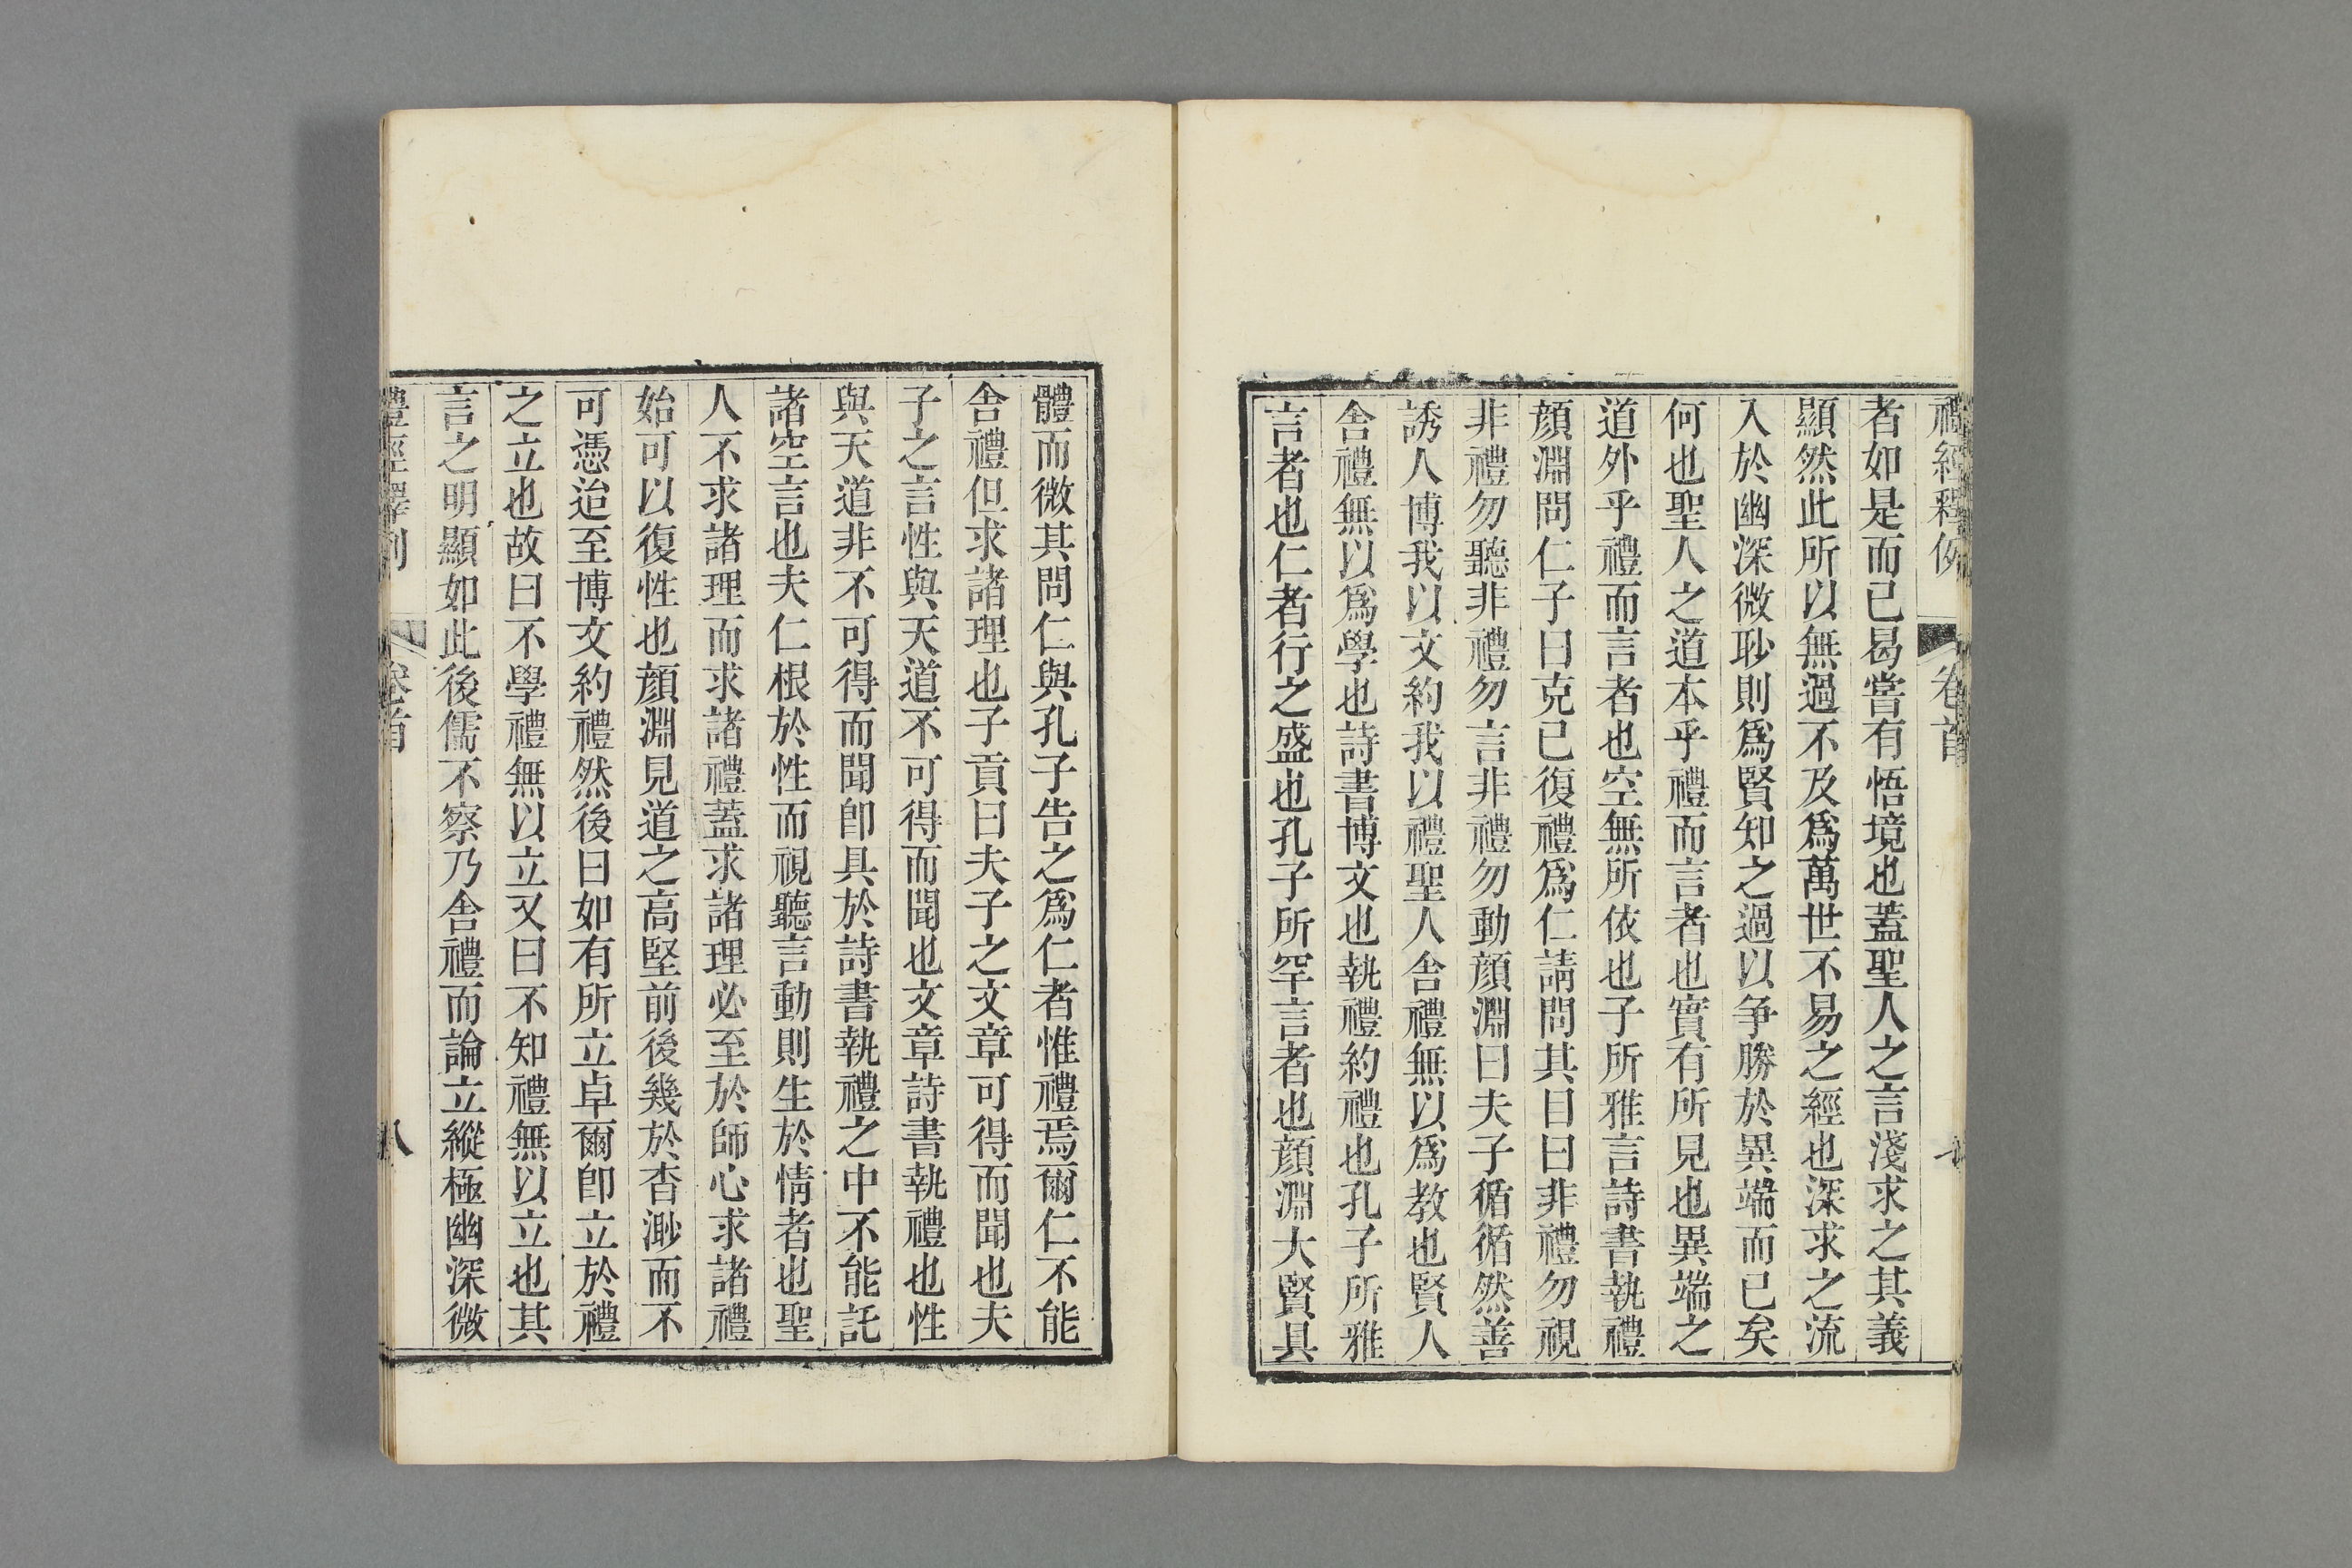 禮經釋例 卷首 七
者如是而已曷嘗有悟境也蓋聖人之言淺求之其義
顯然此所以無過不及爲萬世不易之經也深求之流
入於幽深微眇則爲賢知之過以爭勝於異端而已矣
何也聖人之道本乎禮而言者也實有所見也異端之
道外乎禮而言者也空無所依也子所雅言詩書執禮
顏淵問仁子曰克己復禮爲仁請問其目曰非禮勿視
非禮勿聽非禮勿言非禮勿動顏淵曰夫子循循然善
誘人博我以文約我以禮聖人舍禮無以爲教也賢人
舍禮無以爲學也詩書博文也執禮約禮也孔子所雅
言者也仁者行之盛也孔子所罕言者也顏淵大賢具
體而微其問仁與孔子告之爲仁者惟禮焉爾仁不能
舍禮但求諸理也子貢曰夫子之文章可得而聞也夫
子之言性與天道不可得而聞也文章詩書執禮也性
與天道非不可得而聞卽具於詩書執禮之中不能託
諸空言也夫仁根於性而視聽言動則生於情者也聖
人不求諸理而求諸禮蓋求諸理必至於師心求諸禮
始可以復性也顏淵見道之高堅前後幾於杳渺而不
可憑迨至博文約禮然後曰如有所立卓爾卽立於禮
之立也故曰不學禮無以立又曰不知禮無以立也其
言之明顯如此後儒不察乃舍禮而論立縱極幽深微
禮經釋例 卷首 八